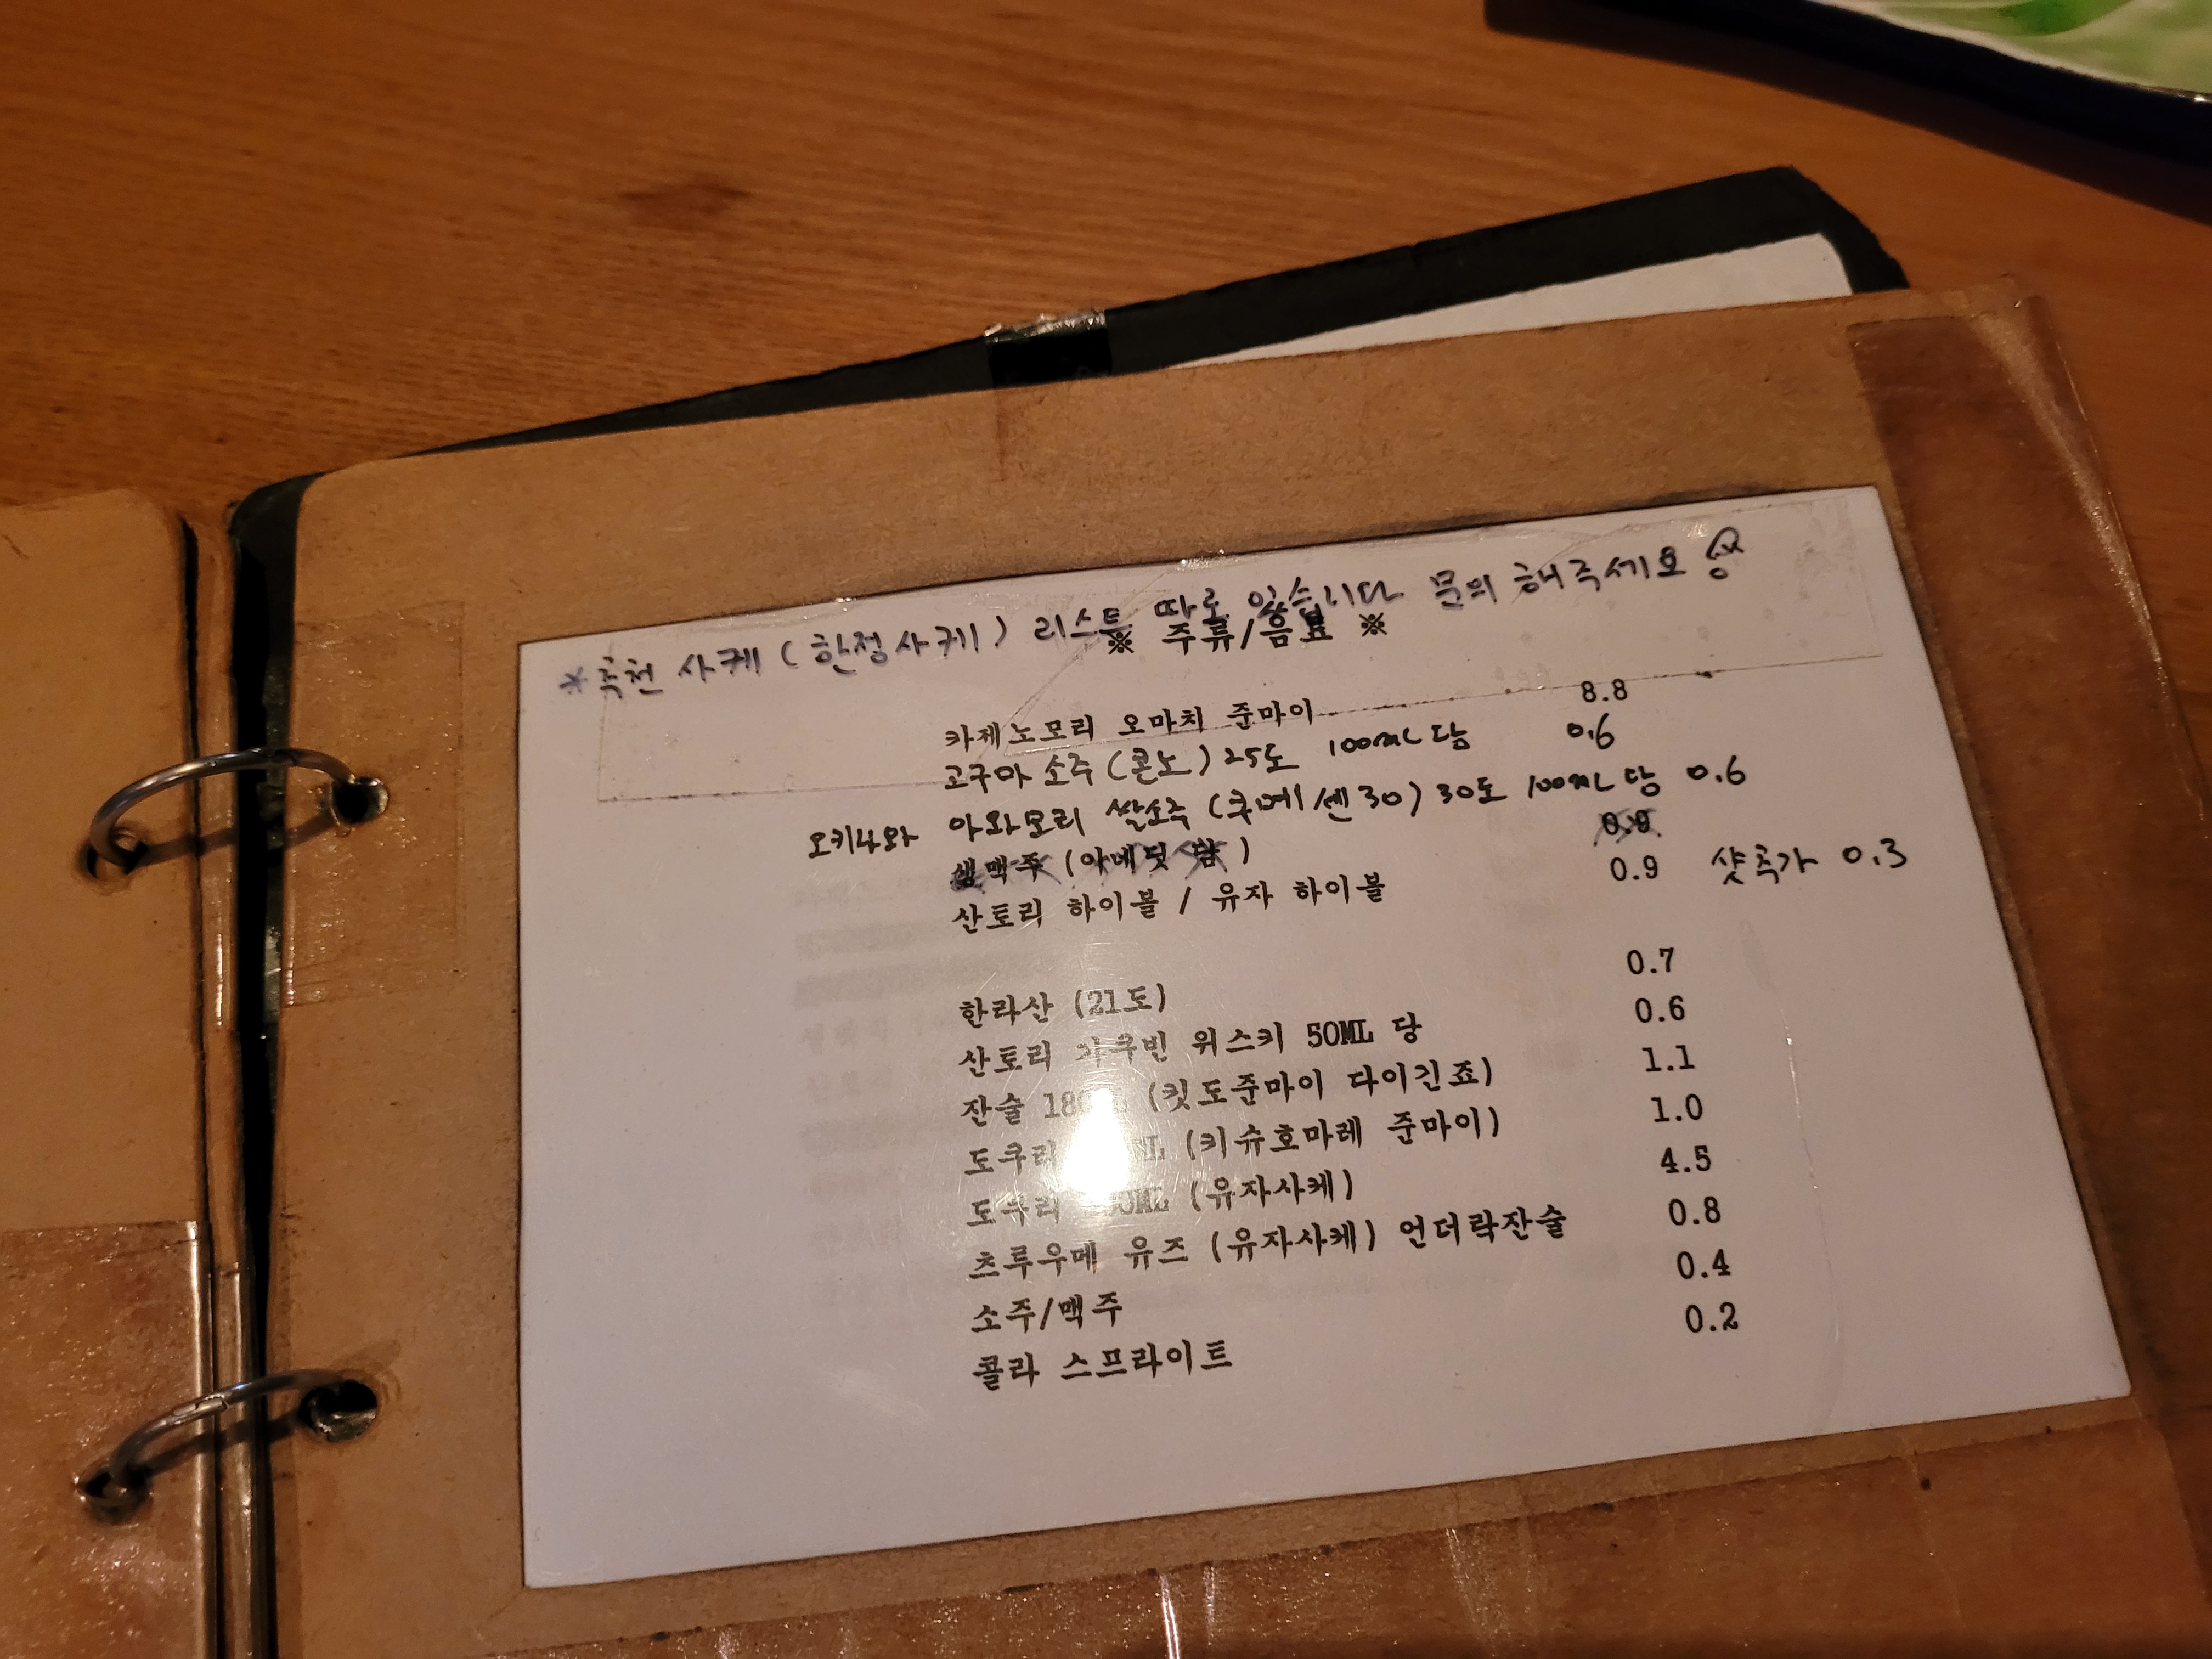 *추천 사케 (한정사케) 리스트 따로 있습니다 문의 해주세요
※ 주류/음료 ※
카제노모리 오마치 준마이 8.8
고구마 소주 (콘노) 25도 100mL당 0.6
오키나와 아와모리 쌀소주 (쿠메/센30) 30도 100mL당 0.6
생맥주 0.9
산토리 하이볼 / 유자 하이볼 0.9 샷추가 0.3
한라산 (21도) 0.7
산토리 가쿠빈 위스키 50ML 당 0.6
잔술 (킷도준마이 다이긴죠) 1.1
도쿠리 (키슈호마레 준마이) 1.0
도쿠리 (유자사케) 4.5
츠루우메 유즈 (유자사케) 언더락잔술 0.8
소주/맥주 0.4
콜라 스프라이트 0.2